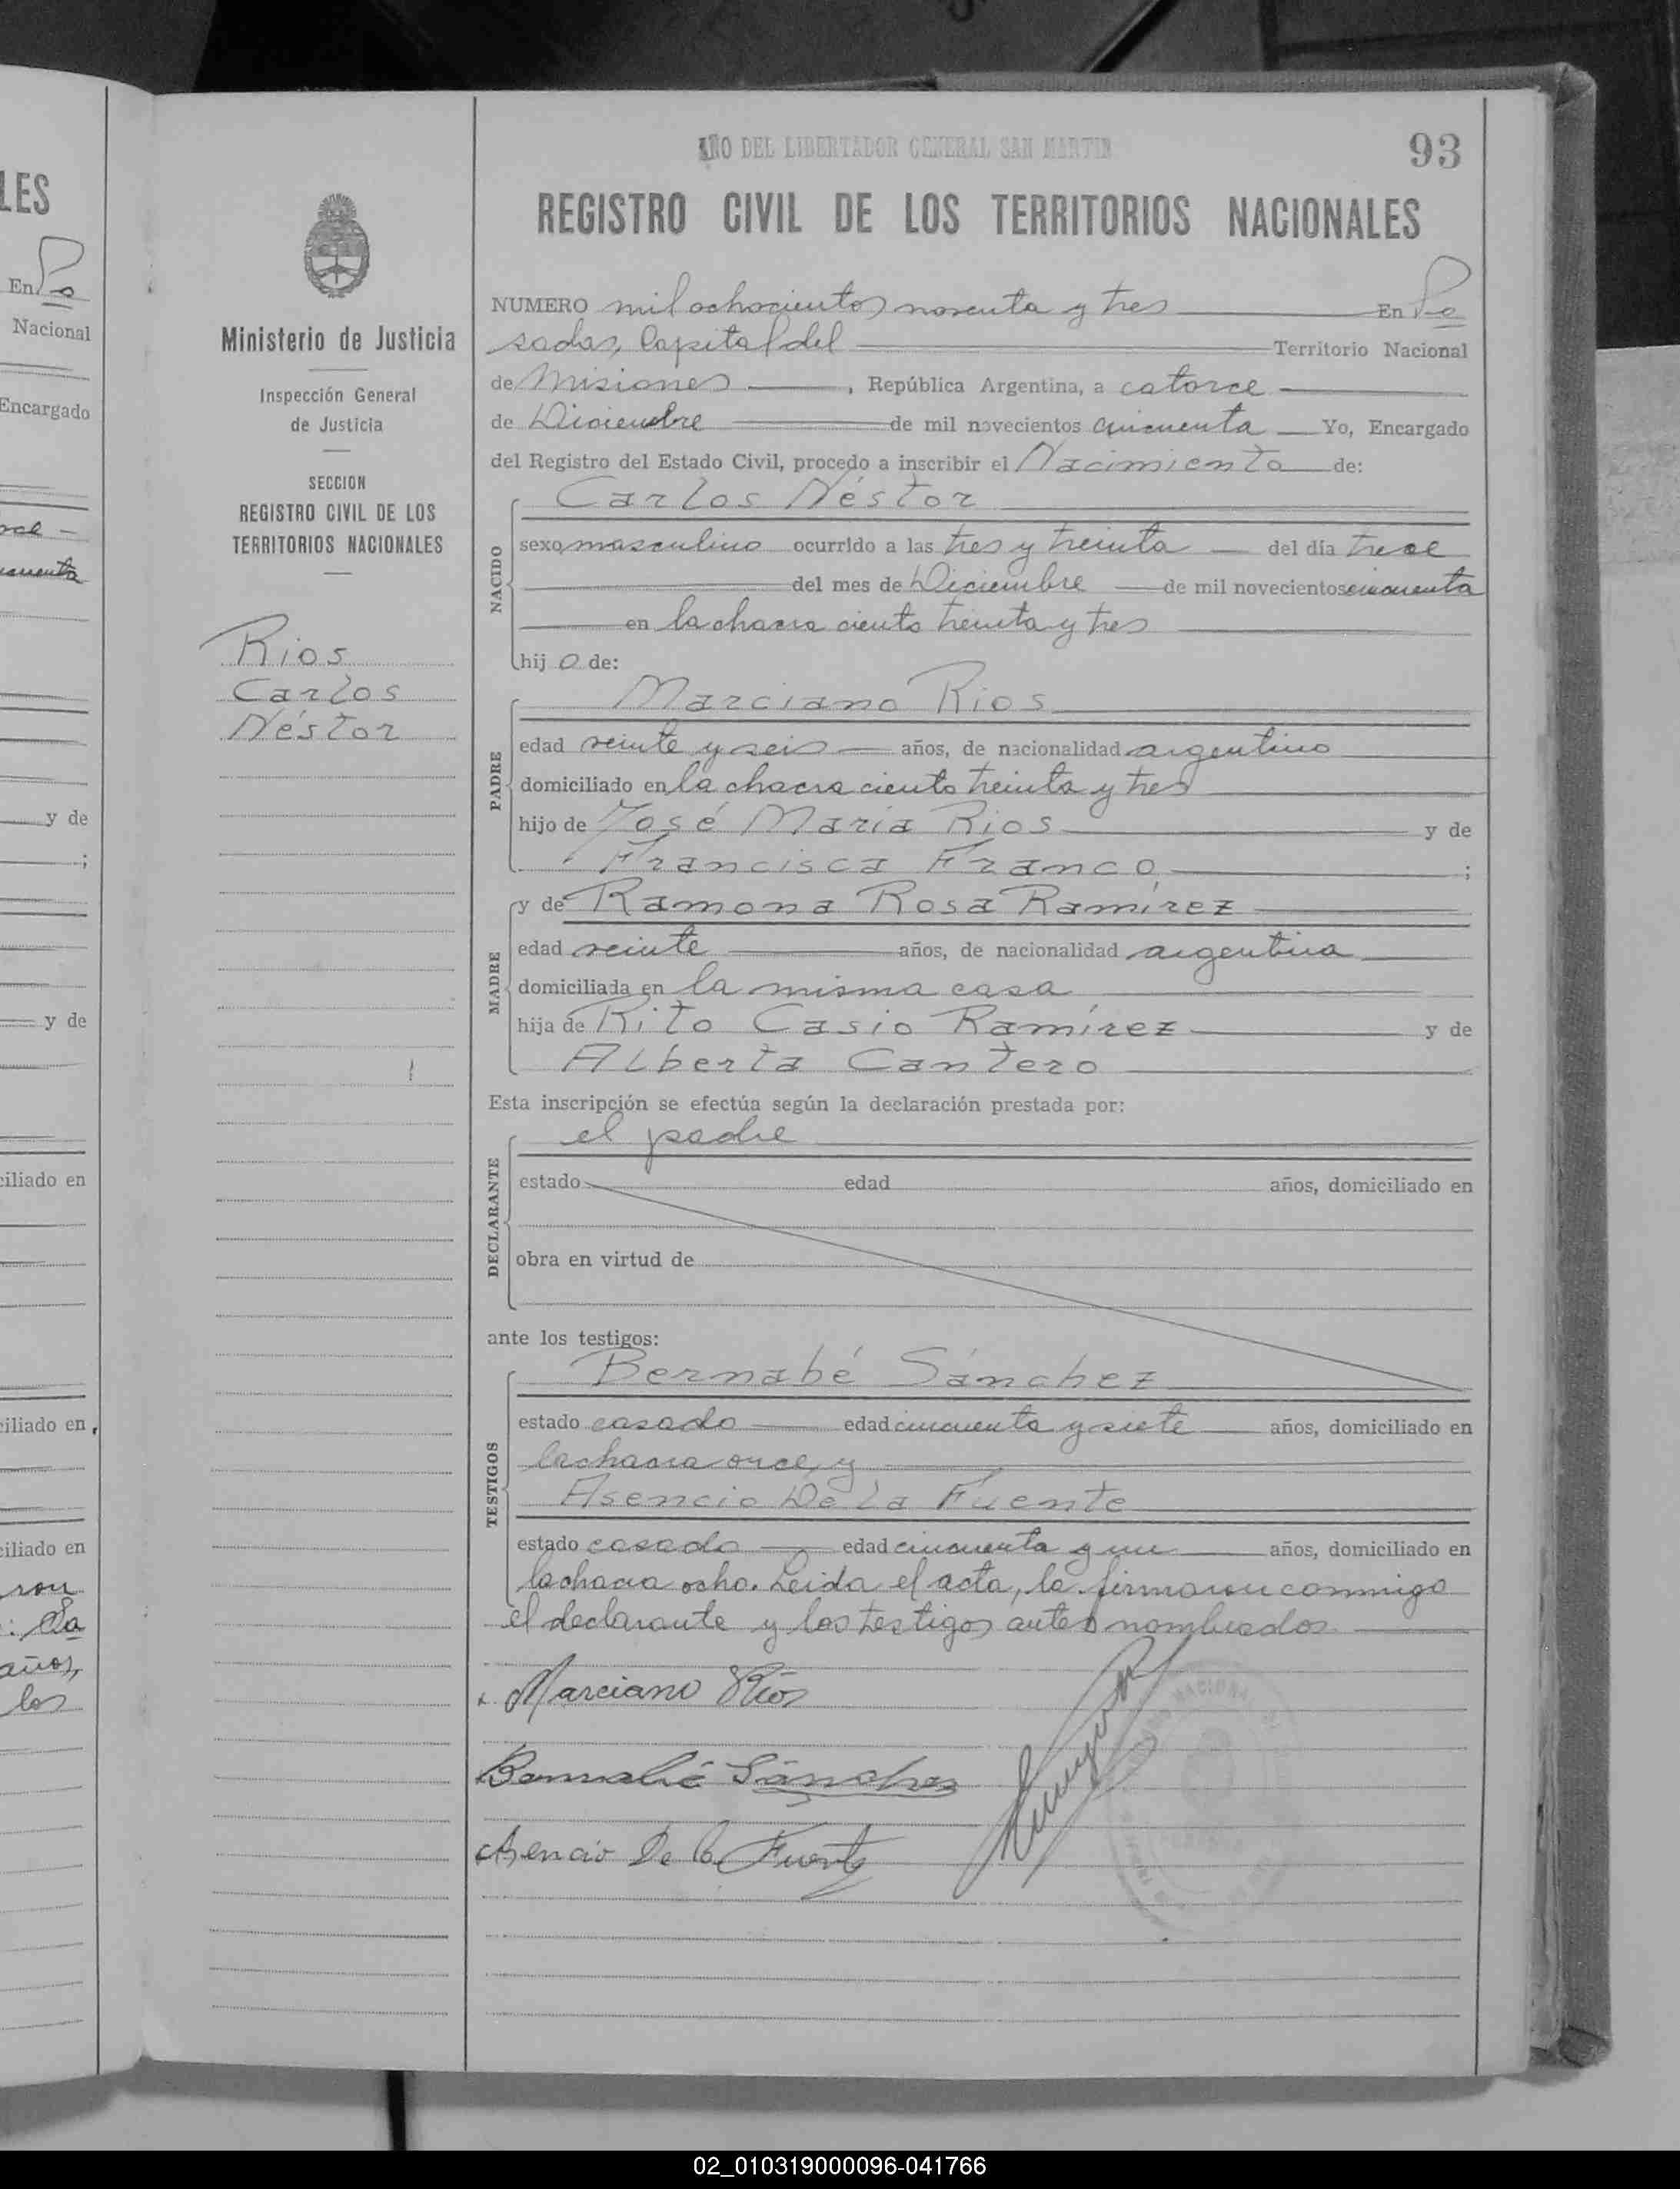 LES
En Po
Nacional
Encargado
y de
;
y de
ciliado en
ciliado en,
ciliado en
ron
: Sa
años,
los
Ministerio de Justicia
Inspección General
de Justicia
SECCION
REGISTRO CIVIL DE LOS
TERRITORIOS NACIONALES
Rios
Carlos
Néstor
AÑO DEL LIBERTADOR GENERAL SAN MARTIN
93
REGISTRO CIVIL DE LOS TERRITORIOS NACIONALES
NUMERO mil ochocientos noventa y tres En Po
sadas, Capital del Territorio Nacional
de Misiones, República Argentina, a catorce
de Diciembre de mil novecientos cincuenta Yo, Encargado
del Registro del Estado Civil, procedo a inscribir el Nacimiento de:
Carlos Néstor
NACIDO
sexo masculino ocurrido a las tres y treinta del día trece
del mes de Diciembre de mil novecientos cincuenta
en la chacra ciento treinta y tres
hij o de:
Marciano Rios
PADRE
edad veinte y seis años, de nacionalidad argentino
domiciliado en la chacra ciento treinta y tres
hijo de José María Rios y de
Francisca Franco ;
y de Ramona Rosa Ramírez
MADRE
edad veinte años, de nacionalidad argentina
domiciliada en la misma casa
hija de Rito Casio Ramírez y de
Alberta Cantero
Esta inscripción se efectúa según la declaración prestada por:
el padre
DECLARANTE
estado edad años, domiciliado en
obra en virtud de
ante los testigos:
Bernabé Sánchez
TESTIGOS
estado casado edad cincuenta y siete años, domiciliado en
la chacra once, y
Asencio De La Fuente
estado casado edad cincuenta y un años, domiciliado en
la chacra ocho. Leida el acta, la firmaron conmigo
el declarante y los testigos antes nombrados
Marciano Rios
Bernabé Sánchez
Asencio De la Fuente
02_010319000096-041766